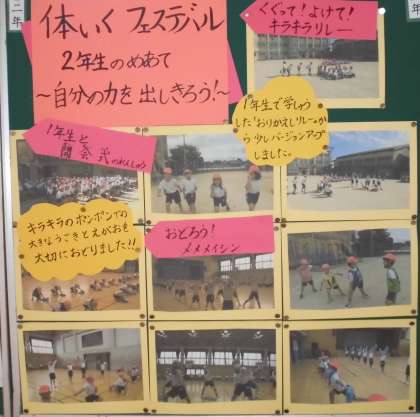 二年
体いくフェスティバル
2年生のめあて
～自分の力を出しきろう!～
くぐって!よけて!
キラキラリレー
1年生で学しゅう
した「おりかえしリレー」か
ら少しバージョンアップ
しました。
1年生と
開会式のれんしゅう
キラキラのポンポンでの
大きなうごきとえがおを
大切におどりました!!
おどろう!
メメメイシン
年